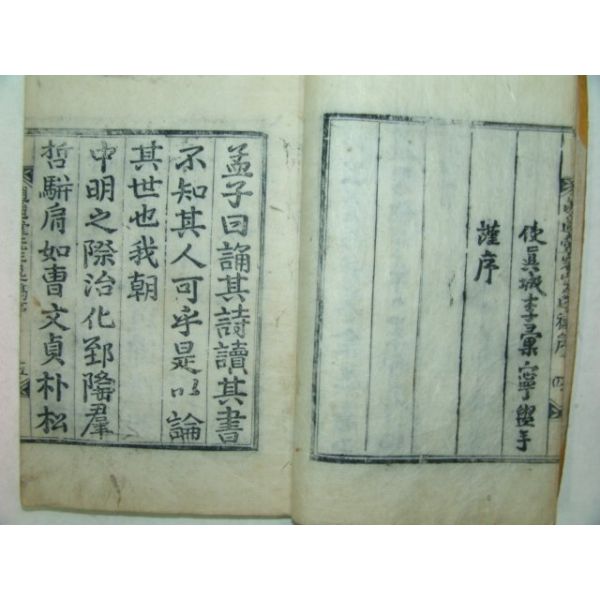 使眞城李彙寧盥手
謹序
孟子曰誦其詩讀其書
不知其人可乎是以論
其世也我朝
中明之際治化郅隆羣
哲騈肩如曹文貞朴松